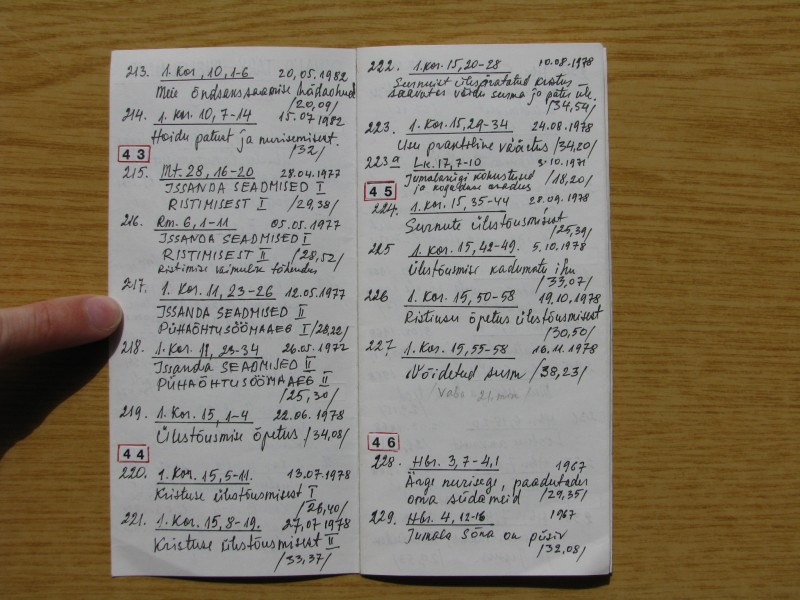 213. 1. Kor. 10, 1-6 20.05.1982
Meie õndsakssaamise hädaohud
/20,09/
214. 1. Kor. 10, 7-14 15.07.1982
Hoidu patust ja nurisemisest.
/32/
43
215. Mt. 28, 16-20 28.04.1977
ISSANDA SEADMISED I
RISTIMISEST I /29,38/
216. Rm. 6, 1-11 05.05.1977
ISSANDA SEADMISED I
RISTIMISEST II /28,52/
Ristimise vaimulik tähendus
217. 1. Kor. 11, 23-26 12.05.1977
ISSANDA SEADMISED II
PÜHAÕHTUSÖÖMAAEG I /28,22/
218. 1. Kor. 11, 23-34 26.05.1977
Issanda SEADMISED II
PÜHAÕHTUSÖÖMAAEG II
/25,30/
219. 1. Kor. 15, 1-4 22.06.1978
Ülestõusmise õpetus /34,08/
44
220. 1. Kor. 15, 5-11. 13.07.1978
Kristuse ülestõusmisest I
/26,40/
221. 1. Kor. 15, 8-19. 27.07.1978
Kristuse ülestõusmisest II
/33,37/
222. 1. Kor. 15, 20-28 10.08.1978
Surnuist ülesäratatud Kristus
saavutas võidu surma ja patu üle.
/34,54/
223. 1. Kor. 15, 29-34 24.08.1978
Usu praktiline väärtus /34,20/
223a Lk. 17, 7-10 3.10.1971
Jumalariigi kohustused
ja kogaduse /18,20/
45
224. 1. Kor. 15, 35-44 28.09.1978
Surnute ülestõusmisest
/25,39/
225 1. Kor. 15, 42-49. 5.10.1978
Ülestõusmise kadumatu ihu
/33,07/
226 1. Kor. 15, 50-58 19.10.1978
Ristiusu õpetus ülestõusmisest
/30,50/
227. 1. Kor. 15, 55-58 16.11.1978
Võidetud surm /38,23/
Vaba 21. min
46
228. Hbr. 3, 7-4,1 1967
Ärge nurisege, paadutades
oma südameid /29,35/
229. Hbr. 4, 12-16 1967
Jumala Sõna on püsiv
/32,08/